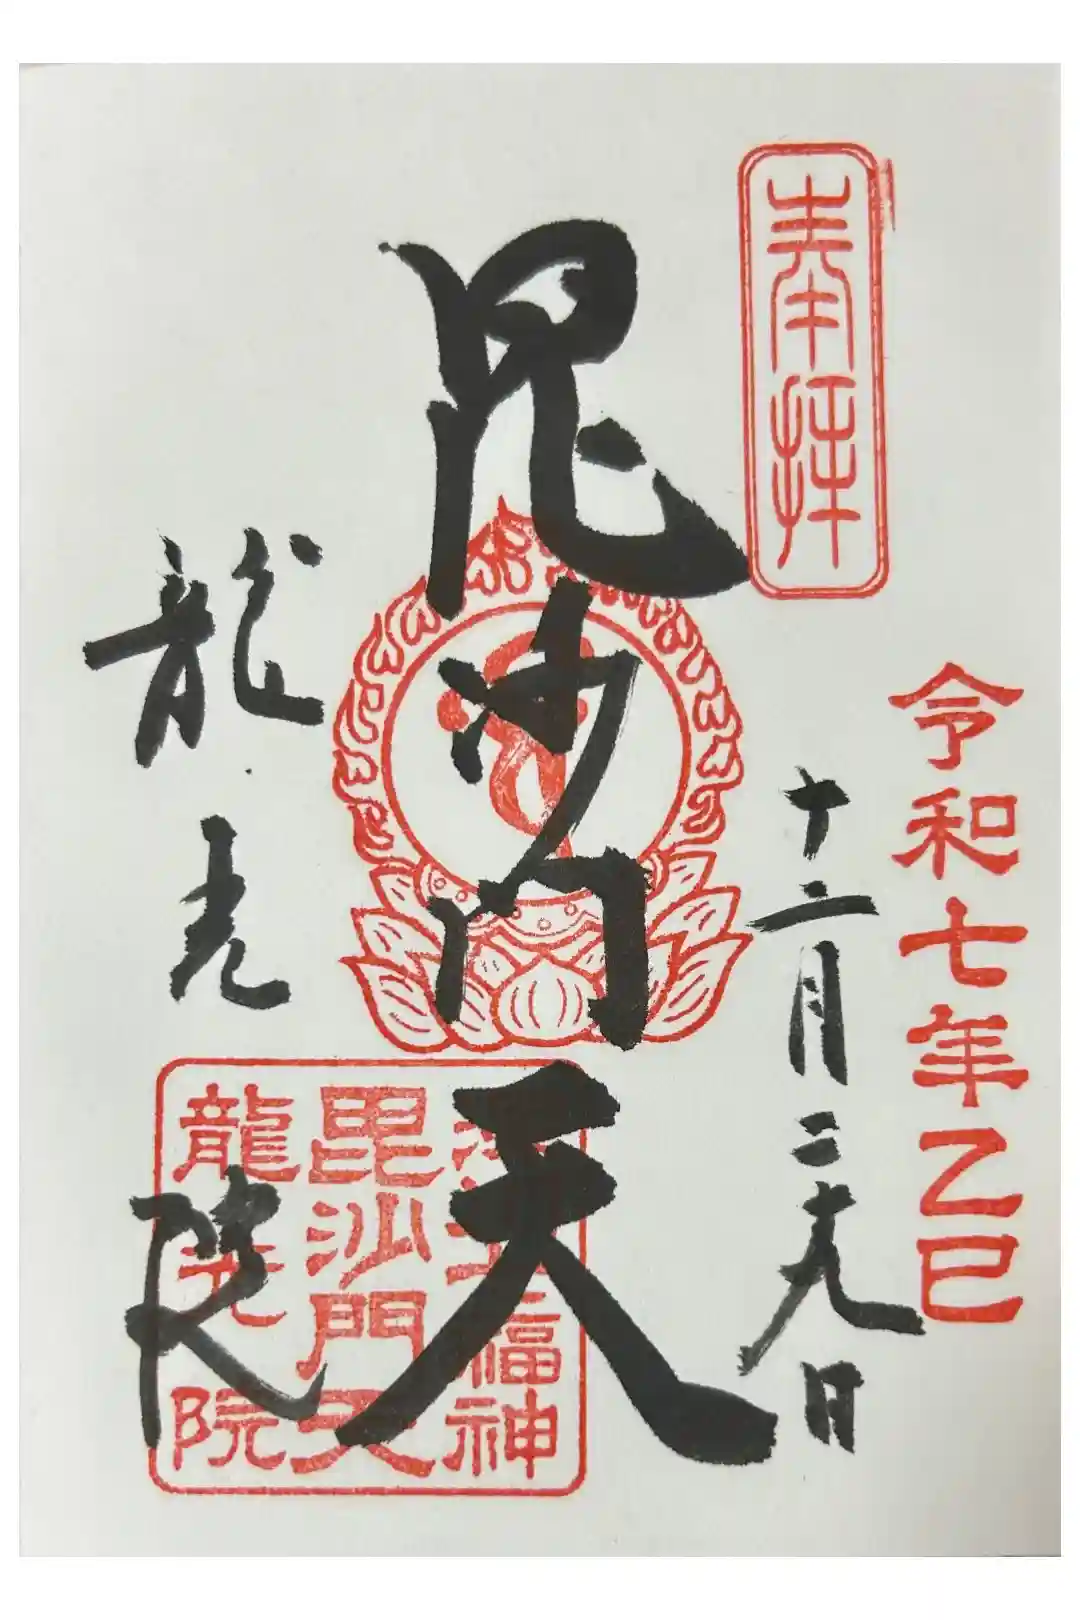 奉拝
令和七年乙巳
十二月二十九日
毘沙門天
龍光院
福神
毘沙門天
龍光院